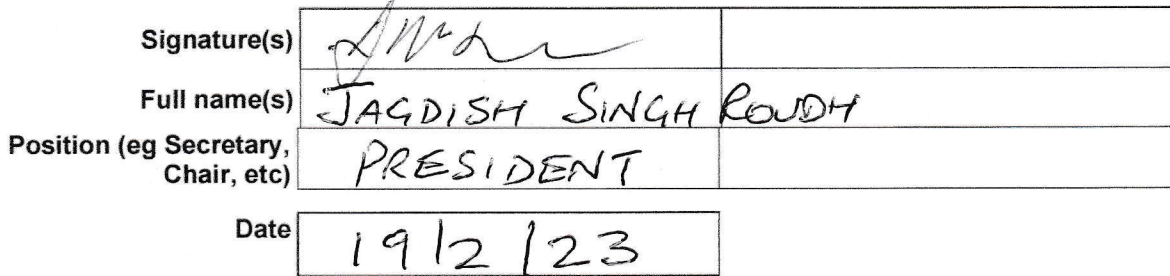 Signature(s)
Full name(s) JAGDISH SINGH ROUDH
Position (eg Secretary,
Chair, etc) PRESIDENT
Date 19/2/23